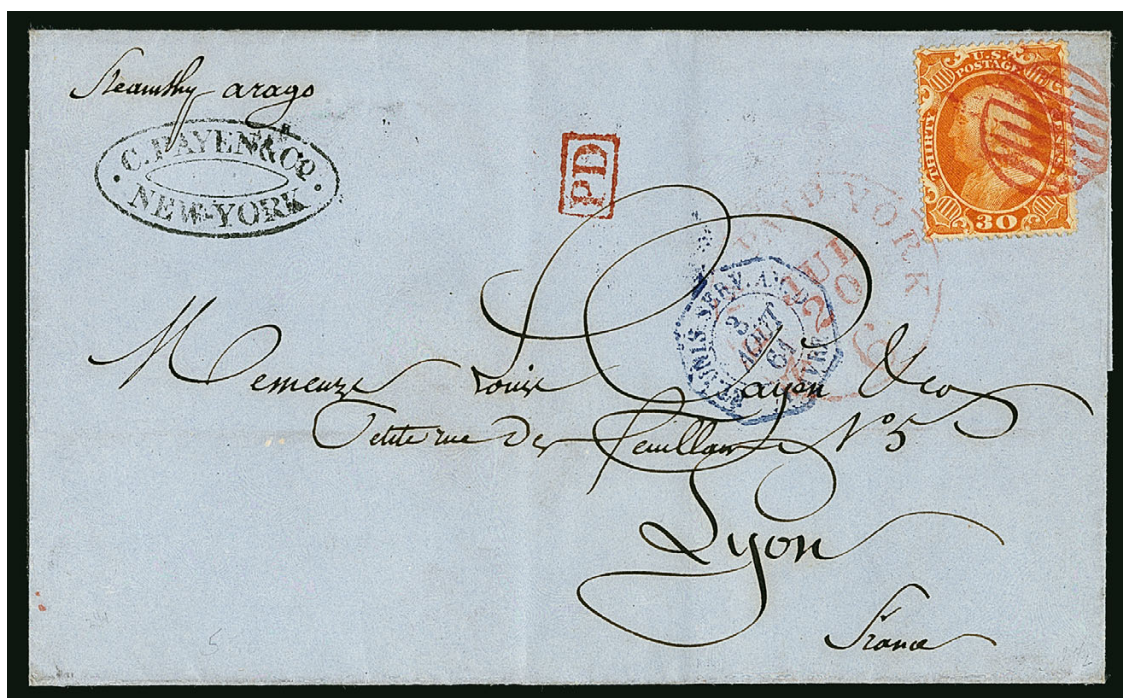 Steamship arago
C. PAYEN & CO.
NEW-YORK
PD
U.S. POSTAGE
THIRTY CENTS
30
NEW YORK
JUL
20
3
AOUT
61
SERV. AM. D
Messieurs Louis Payen & Co
Petite rue des Feuillans No 5
Lyon
France